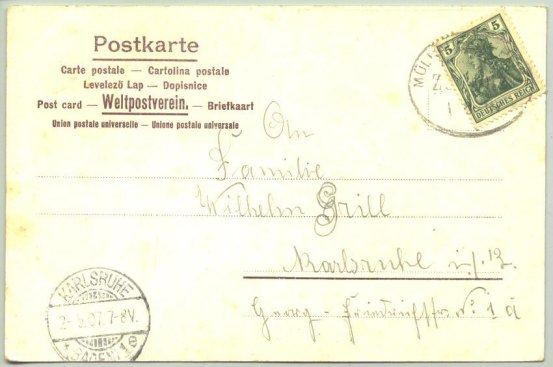 Postkarte
Carte postale — Cartolina postale
Levelező Lap — Dopisnice
Post card — Weltpostverein. — Briefkaart
Union postale universelle — Unione postale universale
5 5
DEUTSCHES REICH
MÜLL
An
Familie
Wilhelm Grill
Karlsruhe i./B.
Georg-Friedrichstr. No. 1a
KARLSRUHE
07. 7-8V.
(BADEN) 1